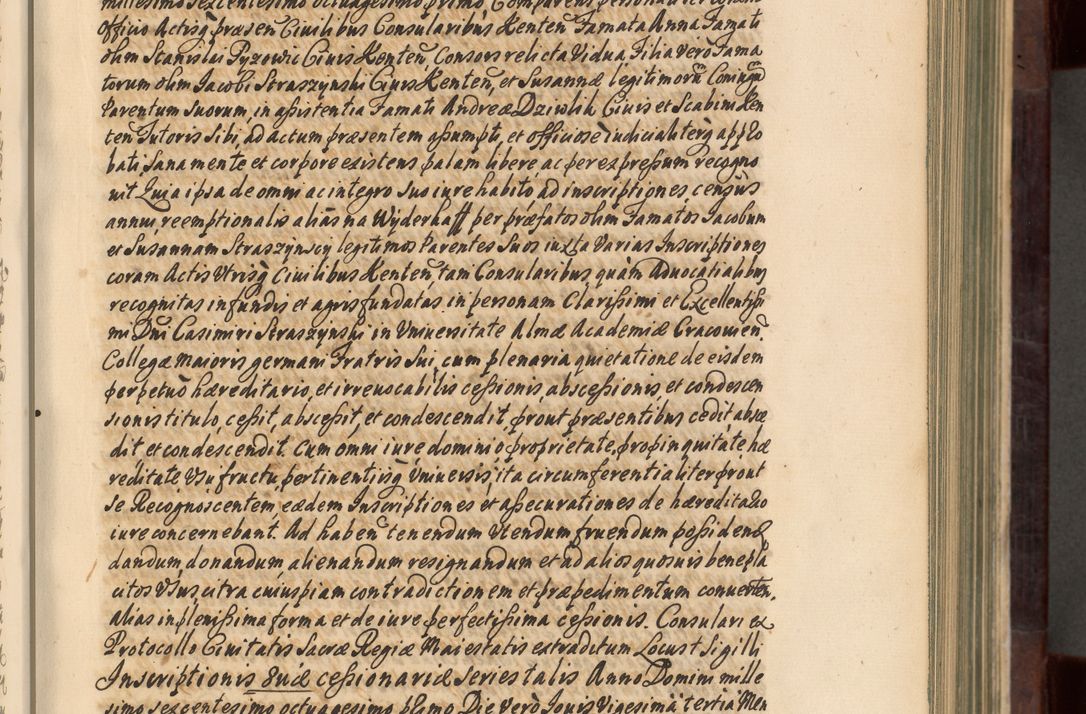 millesimo sexcentesimo octuagesimo primo Comparens personaliter
Officio Actisq̃ præsen Ciuilibus Consularibus Kenteñ Famata Anna Famati
olim Stanislai Pyzowic Ciuis Kenteñ, Consors relicta Vidua, Filia verò Fama
torum olim Jacobi Straszynski Ciuis Kenteñ, et Susannæ legitimorũ Coniugũ
Parentum suorum, in aßistentia Famati Andreæ Dziwlik Ciuis et Scabini Ken
teñ Tutoris sibi, ad actum præsentem aßumpti, et officiose iudicialiterq̃ appro
bati sana mente et corpore existens palam libere ac per expreßum recogno
uit Quia ipsa de omni ac integro suo iure habito, ad inscriptiones census
annui, reemptionalis aliàs na Wyderkaff per præfatos olim Famatos Jacobum
et Susannam Straszynscy legitimos Parentes suos iuxta Varias Inscriptiones
coram Actis Vtrisq̃ Ciuilibus Kenteñ tam Consularibus quàm Aduocatialibus
recognitas in fundis et agris fundatas in personam Clarißimi et Excellentißi
mi Dñi Casimiri Straszynski in Vniuersitate Almæ Academiæ Cracouieñ.
Collegæ Maioris germani Fratris sui, cum plenaria quietatione de eisdem
perpetuò hæreditario, et irreuocabilis ceßionis, absceßionis, et condescen
sionis titulo, ceßit, absceßit, et condescendit, prout præsentibus cedit absce
dit et condescendit. Cum omni iure dominio, proprietate, propinquitate hæ
reditate Vsufructu, pertinentijsq̃ Vniuersis, ita circumferentialiter prout
se Recognoscentem, eædem Inscriptiones et aßecurationes de hæreditario
iure concernebant. Ad habeñ tenendum Vtendum fruendum poßiden
dandum, donandum alienandum resignandum et ad alios quosuis benepla
citos Vsus citra cuiuspiam contradictionem et præpedimentum conuerten.
alias in plenißima forma et de iure perfectißima ceßionis. Consulari ex
Protocollo Ciuitatis Sacræ Regiæ Maiestatis extraditum Locus + Sigilli
Inscriptionis ceßionariæ series talis Anno Domini mille
simo sexcentesimo octuagesimo primo Die verò Jouis Vigesima tertia Men